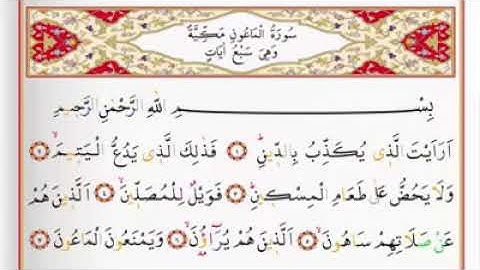 سُورَةُ الْمَاعُونِ مَكِّيَّةٌ
وَهِيَ سَبْعُ اٰيَاتٍ
بِسْمِ اللّٰهِ الرَّحْمٰنِ الرَّحِيمِ
اَرَاَيْتَ الَّذ۪ي يُكَذِّبُ بِالدّ۪ينِۜ ﴿١﴾ فَذٰلِكَ الَّذ۪ي يَدُعُّ الْيَت۪يمَۙ ﴿٢﴾
وَلَا يَحُضُّ عَلٰى طَعَامِ الْمِسْك۪ينِۜ ﴿٣﴾ فَوَيْلٌ لِلْمُصَلّ۪ينَۙ ﴿٤﴾ اَلَّذ۪ينَ هُمْ
عَنْ صَلَاتِهِمْ سَاهُونَۙ ﴿٥﴾ اَلَّذ۪ينَ هُمْ يُرَٓاؤُ۫نَۙ ﴿٦﴾ وَيَمْنَعُونَ الْمَاعُونَ ﴿٧﴾